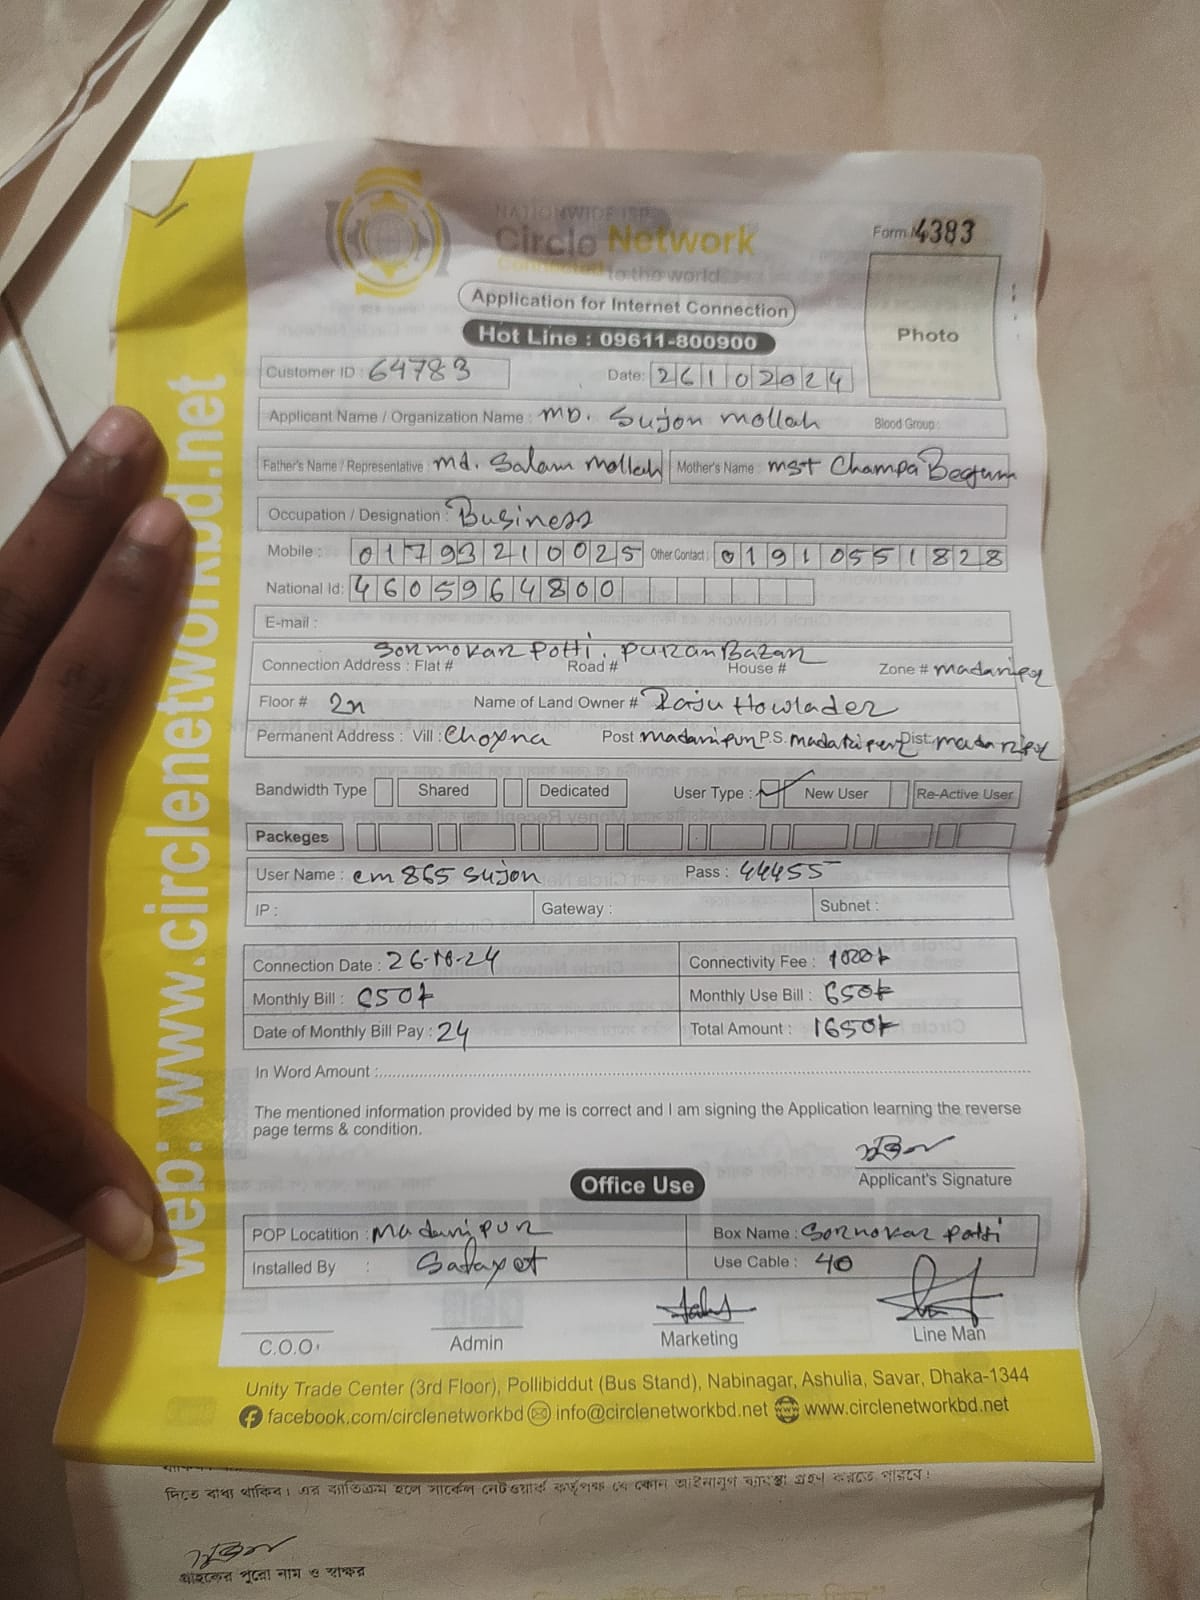 NATIONWIDE ISP
Circle Network
Connected to the world
Form No 4383
Photo
Application for Internet Connection
Hot Line : 09611-800900
Customer ID : 64783 Date: 26102024
Applicant Name / Organization Name : MD. Sujon Mollah Blood Group :
Father's Name / Representative : Md. Salam Mollah Mother's Name : Mst Champa Begum
Occupation / Designation : Business
Mobile : 01793210025 Other Contact : 01910551828
National Id: 4605964800
E-mail :
Sormokar Potti, Puran Bazar
Connection Address : Flat # Road # House # Zone # madaripur
Floor # 2n Name of Land Owner # Raju Howlader
Permanent Address : Vill : Post madaripur P.S. madaripur Dist: madaripur
Bandwidth Type Shared Dedicated User Type : ✓ New User Re-Active User
Packeges
User Name : cm865sujon Pass : 44455
IP : Gateway : Subnet :
Connection Date : 26-10-24 Connectivity Fee :
Monthly Bill : 650 Monthly Use Bill : 650
Date of Monthly Bill Pay : 24 Total Amount : 1650
In Word Amount :
The mentioned information provided by me is correct and I am signing the Application learning the reverse
page terms & condition.
Applicant's Signature
Office Use
POP Locatition : Madaripur Box Name : Sornokar Patti
Installed By : Safayet Use Cable : 40
C.O.O Admin Marketing Line Man
Unity Trade Center (3rd Floor), Pollibiddut (Bus Stand), Nabinagar, Ashulia, Savar, Dhaka-1344
facebook.com/circlenetworkbd info@circlenetworkbd.net www.circlenetworkbd.net
web: www.circlenetworkbd.net
দিতে বাধ্য থাকিব। এর ব্যতিক্রম হলে সার্কেল নেটওয়ার্ক কর্তৃপক্ষ যে কোন আইনানুগ ব্যবস্থা গ্রহণ করতে পারবে।
গ্রাহকের পুরো নাম ও স্বাক্ষর